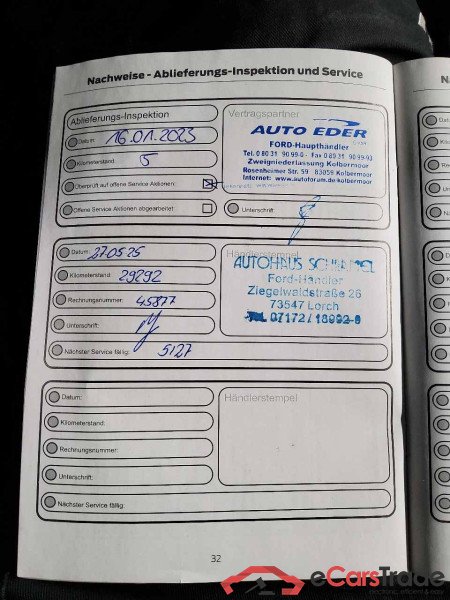 Nachweise - Ablieferungs-Inspektion und Service
Ablieferungs-Inspektion
Datum: 16.01.2023
Kilometerstand: 5
Überprüft auf offene Service Aktionen:
Offene Service Aktionen abgearbeitet:
Vertragspartner
AUTO EDER
FORD-Haupthändler
Tel. 0 80 31 90 99-0 - Fax 0 80 31 90 99-93
Zweigniederlassung Kolbermoor
Rosenheimer Str. 59 83059 Kolbermoor
Internet: www.autoforum.de/kolbermoor
Unterschrift:
Datum: 27.05.25
Kilometerstand: 29292
Rechnungsnummer: 45877
Unterschrift:
Nächster Service fällig: 5/27
Händlerstempel
AUTOHAUS SCHRAMEL
Ford-Händler
Ziegelwaldstraße 26
73547 Lorch
Tel. 07172/18992-0
Datum:
Kilometerstand:
Rechnungsnummer:
Unterschrift:
Nächster Service fällig:
Händlerstempel
32
eCarsTrade
electronic, efficient & easy